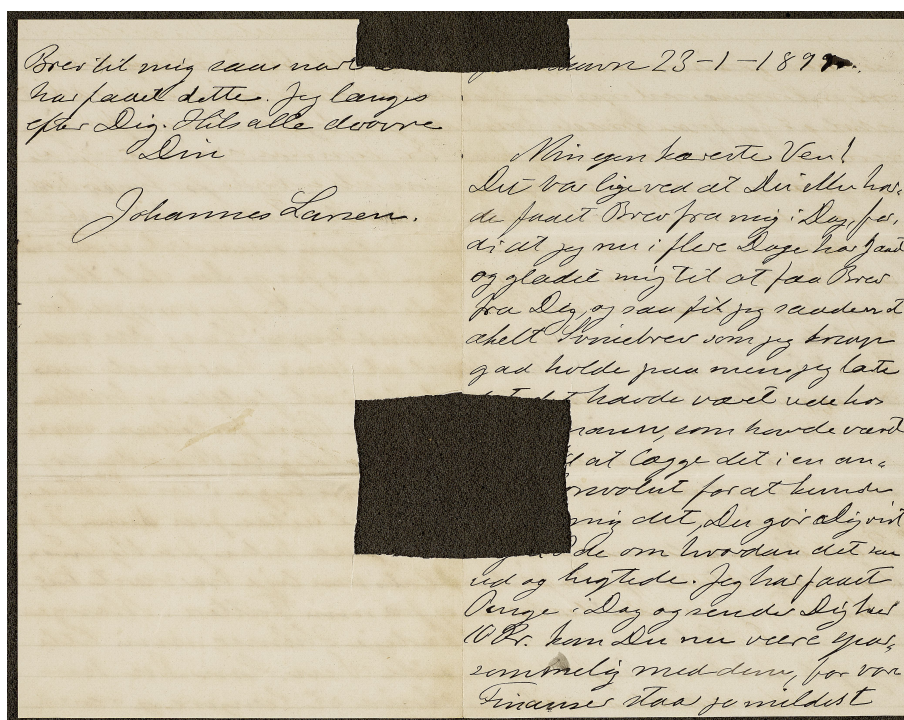 Brev til mig saa snart
har faaet dette. Jeg længes
efter Dig. Hils alle derovre
Din
Johannes Larsen.
havn 23-1-1899.
Min egen kæreste Ven!
Det var lige ved at Du ikke hav-
de faaet Brev fra mig i Dag, for-
di at jeg nu i flere Dage har gaaet
og glædet mig til at faa Brev
fra Dig, og saa fik jeg saadan et
helt Svinebrev som jeg knap
gad holde paa mens jeg læste
det det havde været ude hos
manden, som havde været
at lægge det i en an-
Konvolut for at kunde
mig det, Du gør Dig vist
om hvordan det saa
ud og lugtede. Jeg har faaet
Penge i Dag og sender Dig her
10 Kr. kan Du nu være spar-
sommelig med dem, for vore
Finanser staar jo mildest